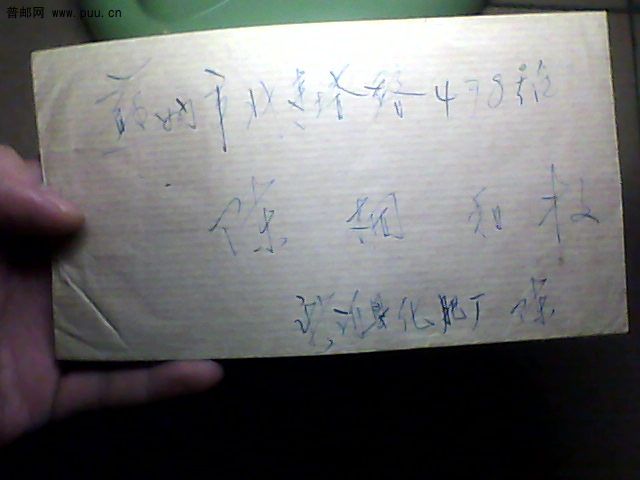 普邮网 www.puu.cn
苏州市北寺塔路478號
陈 和 收
吴江县化肥厂 陈